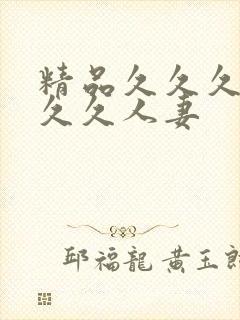 精品久久久
久久人妻
邱福龍 黄玉郎